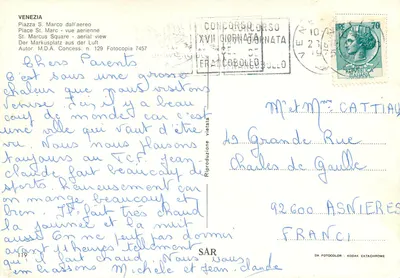 VENEZIA
Piazza S. Marco dall'aereo
Place St. Marc - vue aerienne
St. Marcus Square - aerial view
Der Markusplatz aus der Luft
Autor. M.D.A. Concess. n. 129 Fotocopia 7457
CONCORSO
XVII GIORNATA
FRANCOBOLLO
Chers Parents
C'est sous une grosse
chaleur que nous visitons
venise. Il y a beau
coup de monde car c'est
une ville qui vaut d'être
vu. Nous nous plaisons
toujours au T.C.F. Jean
claude fait beaucoup de
sports. Heureusement car
on mange beaucoup et
bien. Il fait très chaud
la journée et la nuit
aussi. On ne peut pas dormir
avant heures tellement
qu'il fait chaud. Nous vous
embrassons Michèle et Jean-Claude
Riproduzione vietata
SAR
M. et Mme CATTIAU
29 Grande Rue
Charles de Gaulle
92600 ASNIERES
FRANCE
DA FOTOCOLOR - KODAK EKTACHROME